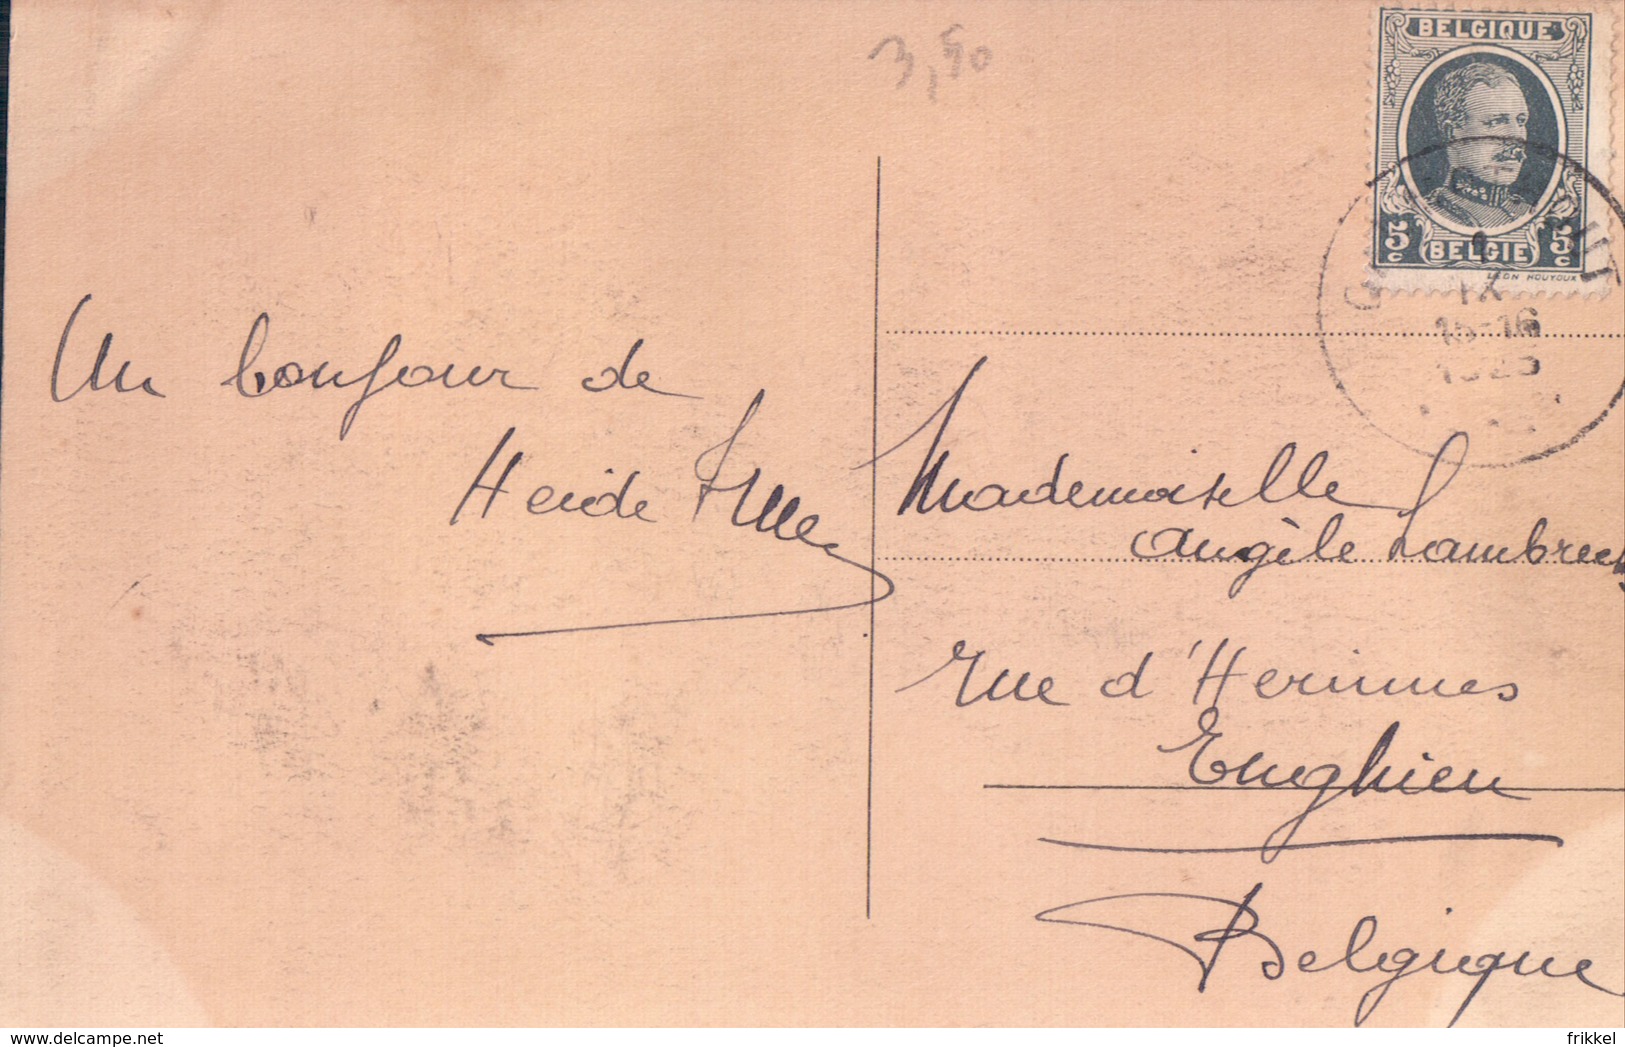 3,50
BELGIQUE
5c BELGIE 5c
LÉON HOUYOUX
IX
15-16
192
Un bonjour de
Heide
Mademoiselle
Angèle Lambrechts
rue d'Herinnes
Enghien
Belgique
http://www.delcampe.net
frikkel